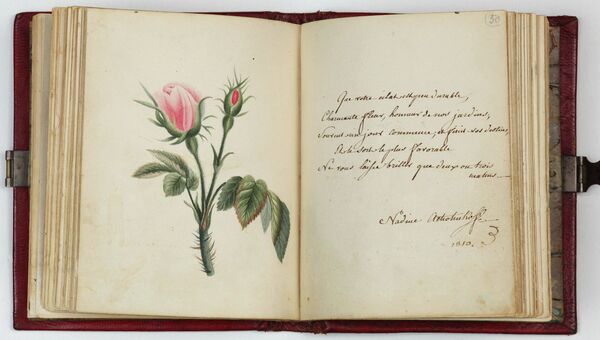 30
Que votre éclat est peu durable,
Charmante fleur, honneur de nos jardins,
Souvent un jour commence, et finit vos destins,
Et le sort le plus favorable
Ne vous laisse briller que deux ou trois
matins.
Nadine
1810.